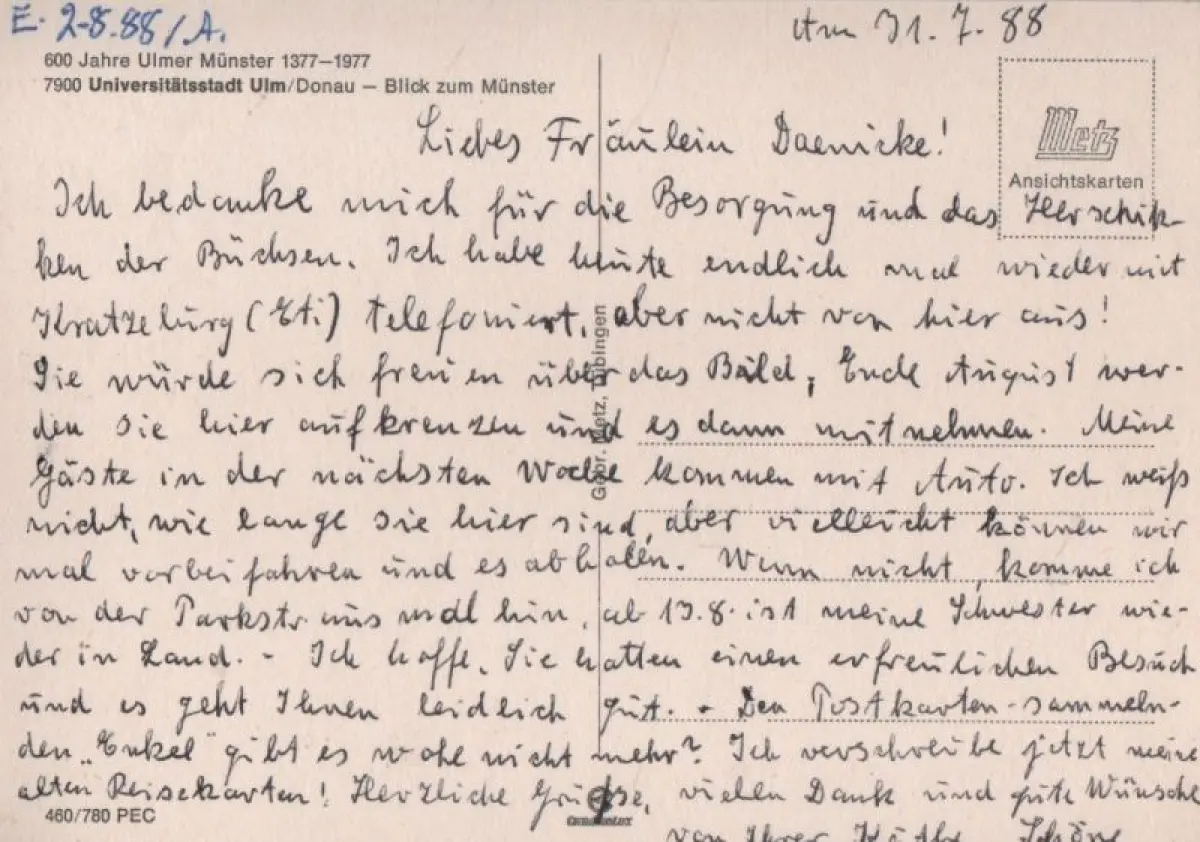 E. 2-8.88/A.
Am 31.7.88
600 Jahre Ulmer Münster 1377–1977
7900 Universitätsstadt Ulm/Donau – Blick zum Münster
Metz
Ansichtskarten
Liebes Fräulein Daenicke!
Ich bedanke mich für die Besorgung und das Herschik-
ken der Büchsen. Ich habe heute endlich mal wieder mit
Kratzeburg (Eti) telefoniert, aber nicht von hier aus!
Sie würde sich freuen über das Bild, Ende August wer-
den sie hier aufkreuzen und es dann mitnehmen. Meine
Gäste in der nächsten Woche kommen mit Auto. Ich weiß
nicht, wie lange sie hier sind, aber vielleicht können wir
mal vorbeifahren und es abholen. Wenn nicht, komme ich
von der Parkstr. aus mal hin, ab 13.8. ist meine Schwester wie-
der in Land. - Ich hoffe, Sie hatten einen erfreulichen Besuch
und es geht Ihnen leidlich gut. - Den Postkarten-sammeln-
den „Enkel" gibt es wohl nicht mehr? Ich verschreibe jetzt meine
alten Reisekarten! Herzliche Grüße, vielen Dank und gute Wünsche
von Ihrer Käthe Schöne
Gebr. Metz, Tübingen
460/780 PEC